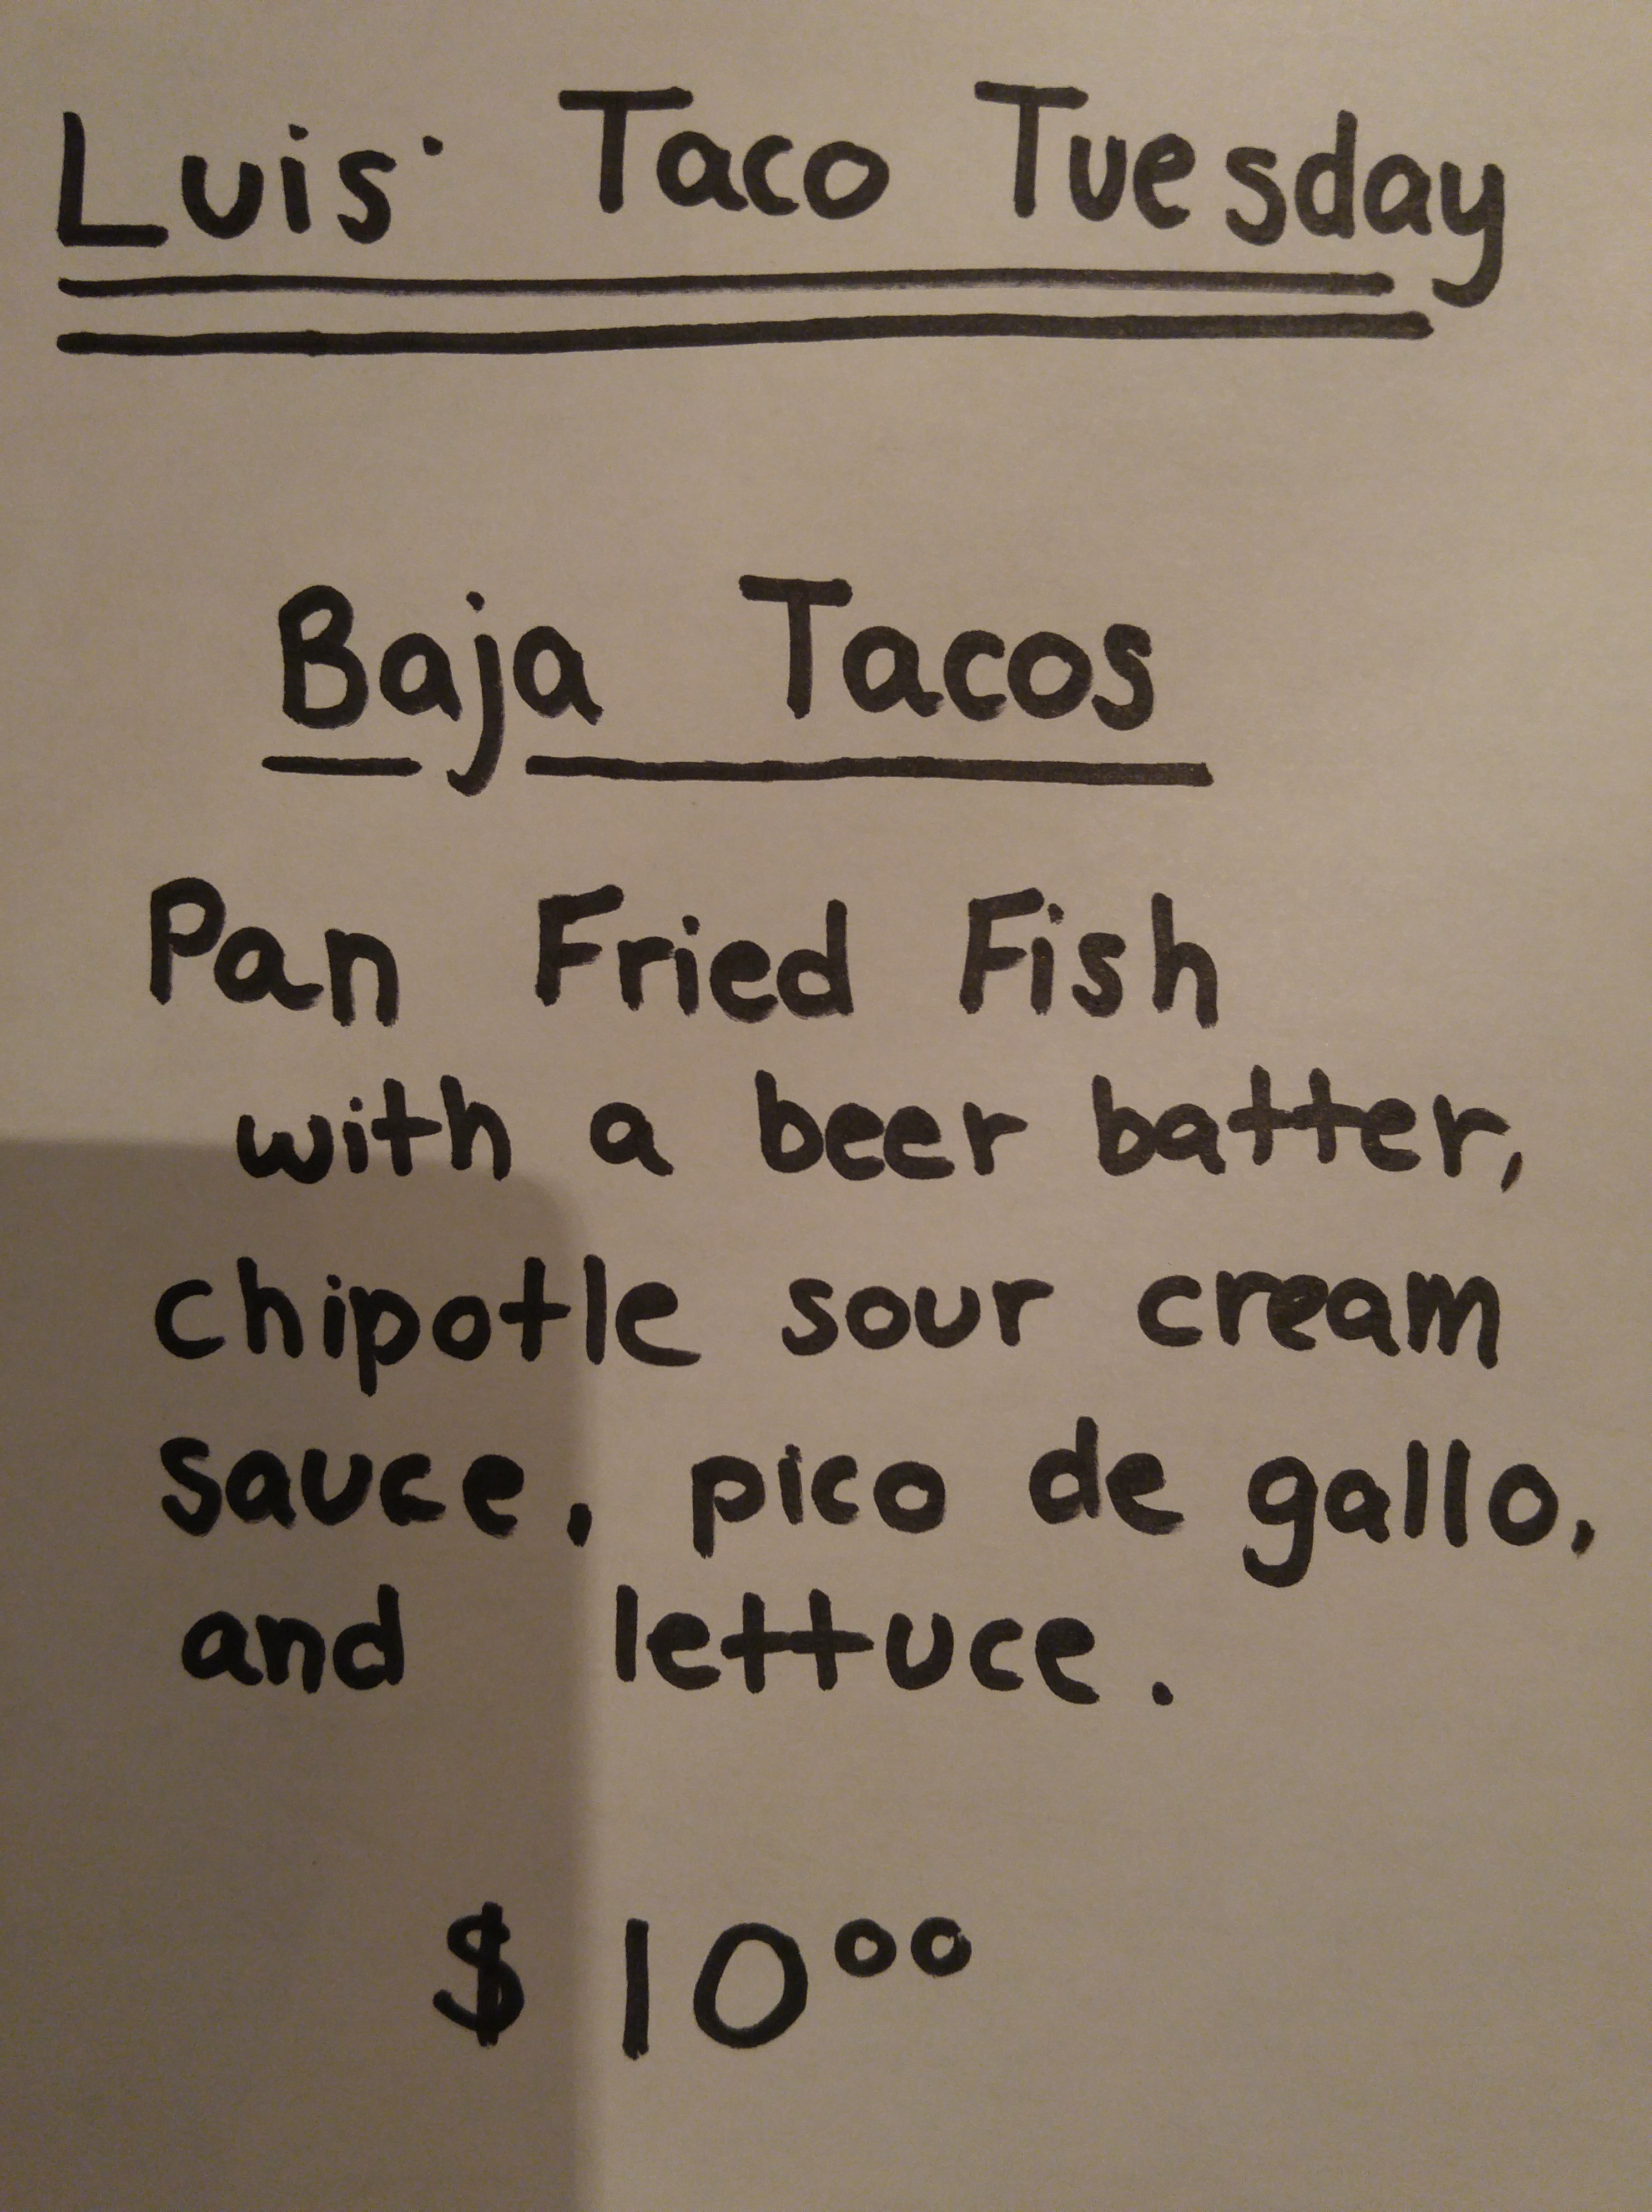 Luis' Taco Tuesday
Baja Tacos
Pan Fried Fish
with a beer batter,
chipotle sour cream
sauce, pico de gallo,
and lettuce.
$10⁰⁰